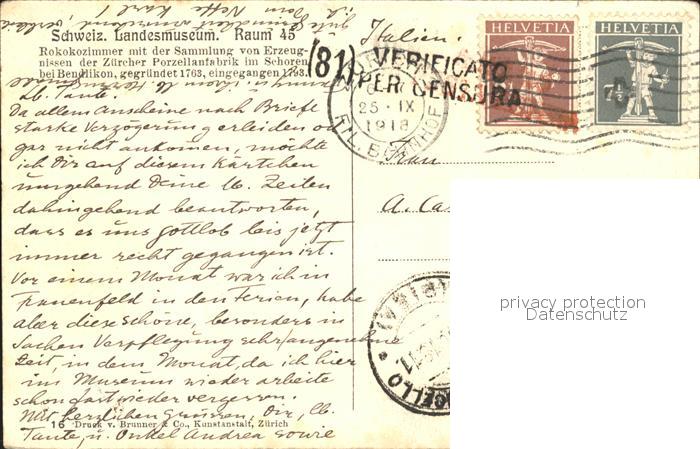 Schweiz. Landesmuseum. Raum 45
Rokokozimmer mit der Sammlung von Erzeug-
nissen der Zürcher Porzellanfabrik im Schoren
bei Bendlikon, gegründet 1763, eingegangen 1793.
Italien.
(81) VERIFICATO
PER CENSURA
HELVETIA
HELVETIA
25. IX
1918
FIL. BAHNHOF
Lb. Tante.
Da allem Anscheine nach Briefe
starke Verzögerung erleiden od
gar nicht ankommen, möchte
ich Dir auf diesem Kärtchen
umgehend Deine lb. Zeilen
dahingehend beantworten,
dass es uns gottlob bis jetzt
immer recht gegangen ist.
Vor einem Monat war ich in
Frauenfeld in den Ferien, habe
aber diese schöne, besonders in
Sachen Verpflegung sehr angenehme
Zeit, in dem Monat, da ich hier
im Museum wieder arbeite
schon fast wieder vergessen.
Mit herzlichen Grüssen, Dir, lb.
Tante, u. Onkel Andrea sowie
Frau
A. Ca
16 Druck v. Brunner & Co., Kunstanstalt, Zürich
privacy protection
Datenschutz